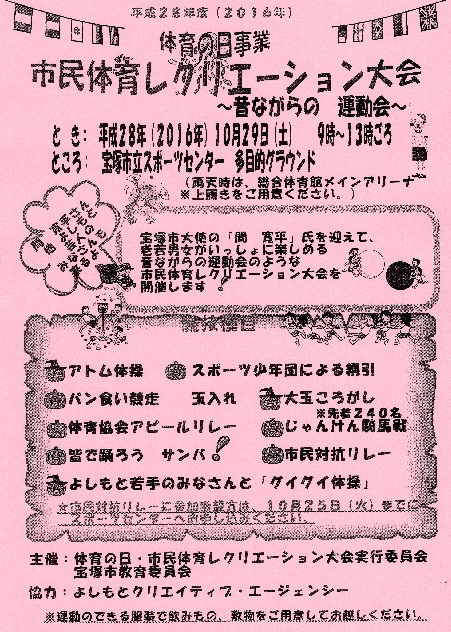 平成28年度（2016年）
体育の日事業
市民体育レクリエーション大会
～昔ながらの 運動会～
とき： 平成28年（2016年）10月29日（土） 9時～13時ごろ
ところ： 宝塚市立スポーツセンター 多目的グラウンド
（雨天時は、総合体育館メインアリーナ
※上履きをご用意ください。）
宝塚市大使の「間 寛平」氏を迎えて、
老若男女がいっしょに楽しめる
昔ながらの運動会のような
市民体育レクリエーション大会を
開催します！
アトム体操 スポーツ少年団による綱引
パン食い競走 玉入れ 大玉ころがし
※先着240名
体育協会アピールリレー じゃんけん騎馬戦
皆で踊ろう サンバ！ 市民対抗リレー
よしもと若手のみなさんと「グイグイ体操」
☆市民対抗リレーに参加希望方は、10月25日（火）までに
スポーツセンターへお申し込みください。
主催：体育の日・市民体育レクリエーション大会実行委員会
宝塚市教育委員会
協力：よしもとクリエイティブ・エージェンシー
※運動のできる服装で飲みもの、敷物をご用意してお越しください。